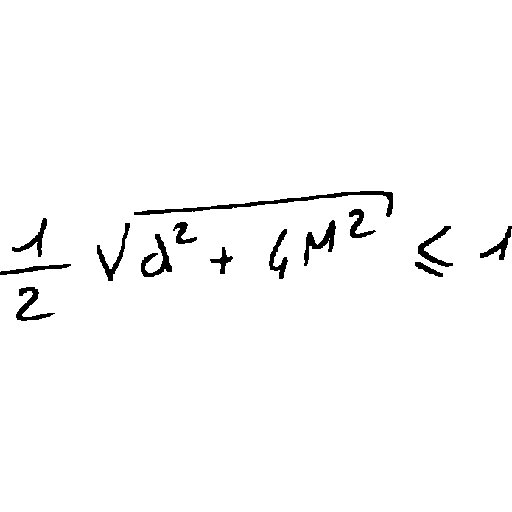 \frac{1}{2} \sqrt{d^2 + 4M^2} \leq 1